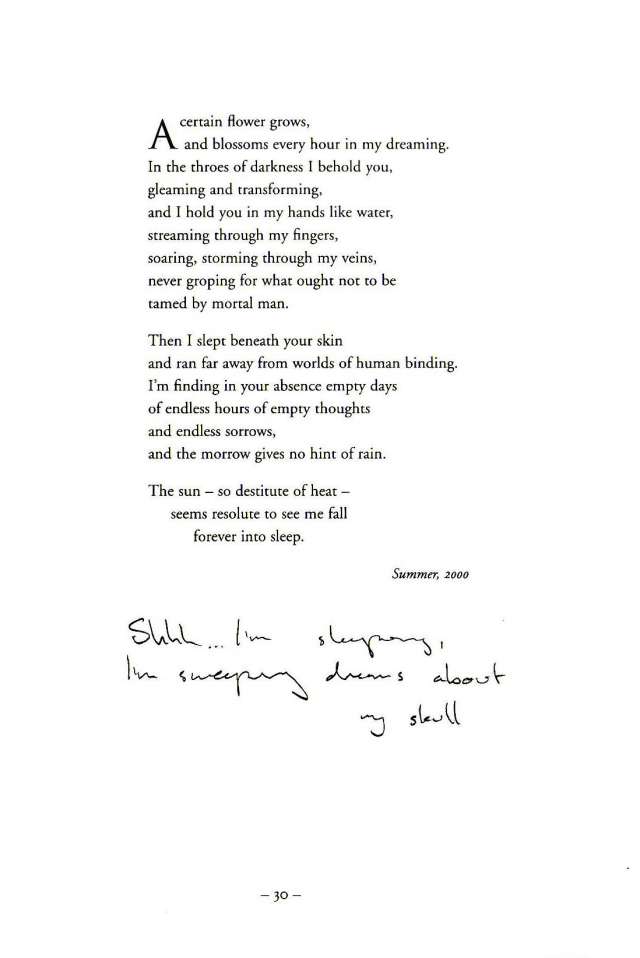 A certain flower grows,
and blossoms every hour in my dreaming.
In the throes of darkness I behold you,
gleaming and transforming,
and I hold you in my hands like water,
streaming through my fingers,
soaring, storming through my veins,
never groping for what ought not to be
tamed by mortal man.
Then I slept beneath your skin
and ran far away from worlds of human binding.
I'm finding in your absence empty days
of endless hours of empty thoughts
and endless sorrows,
and the morrow gives no hint of rain.
The sun – so destitute of heat –
seems resolute to see me fall
forever into sleep.
Summer, 2000
Shhh... I'm sleeping,
I'm sweeping dreams about
my skull
– 30 –